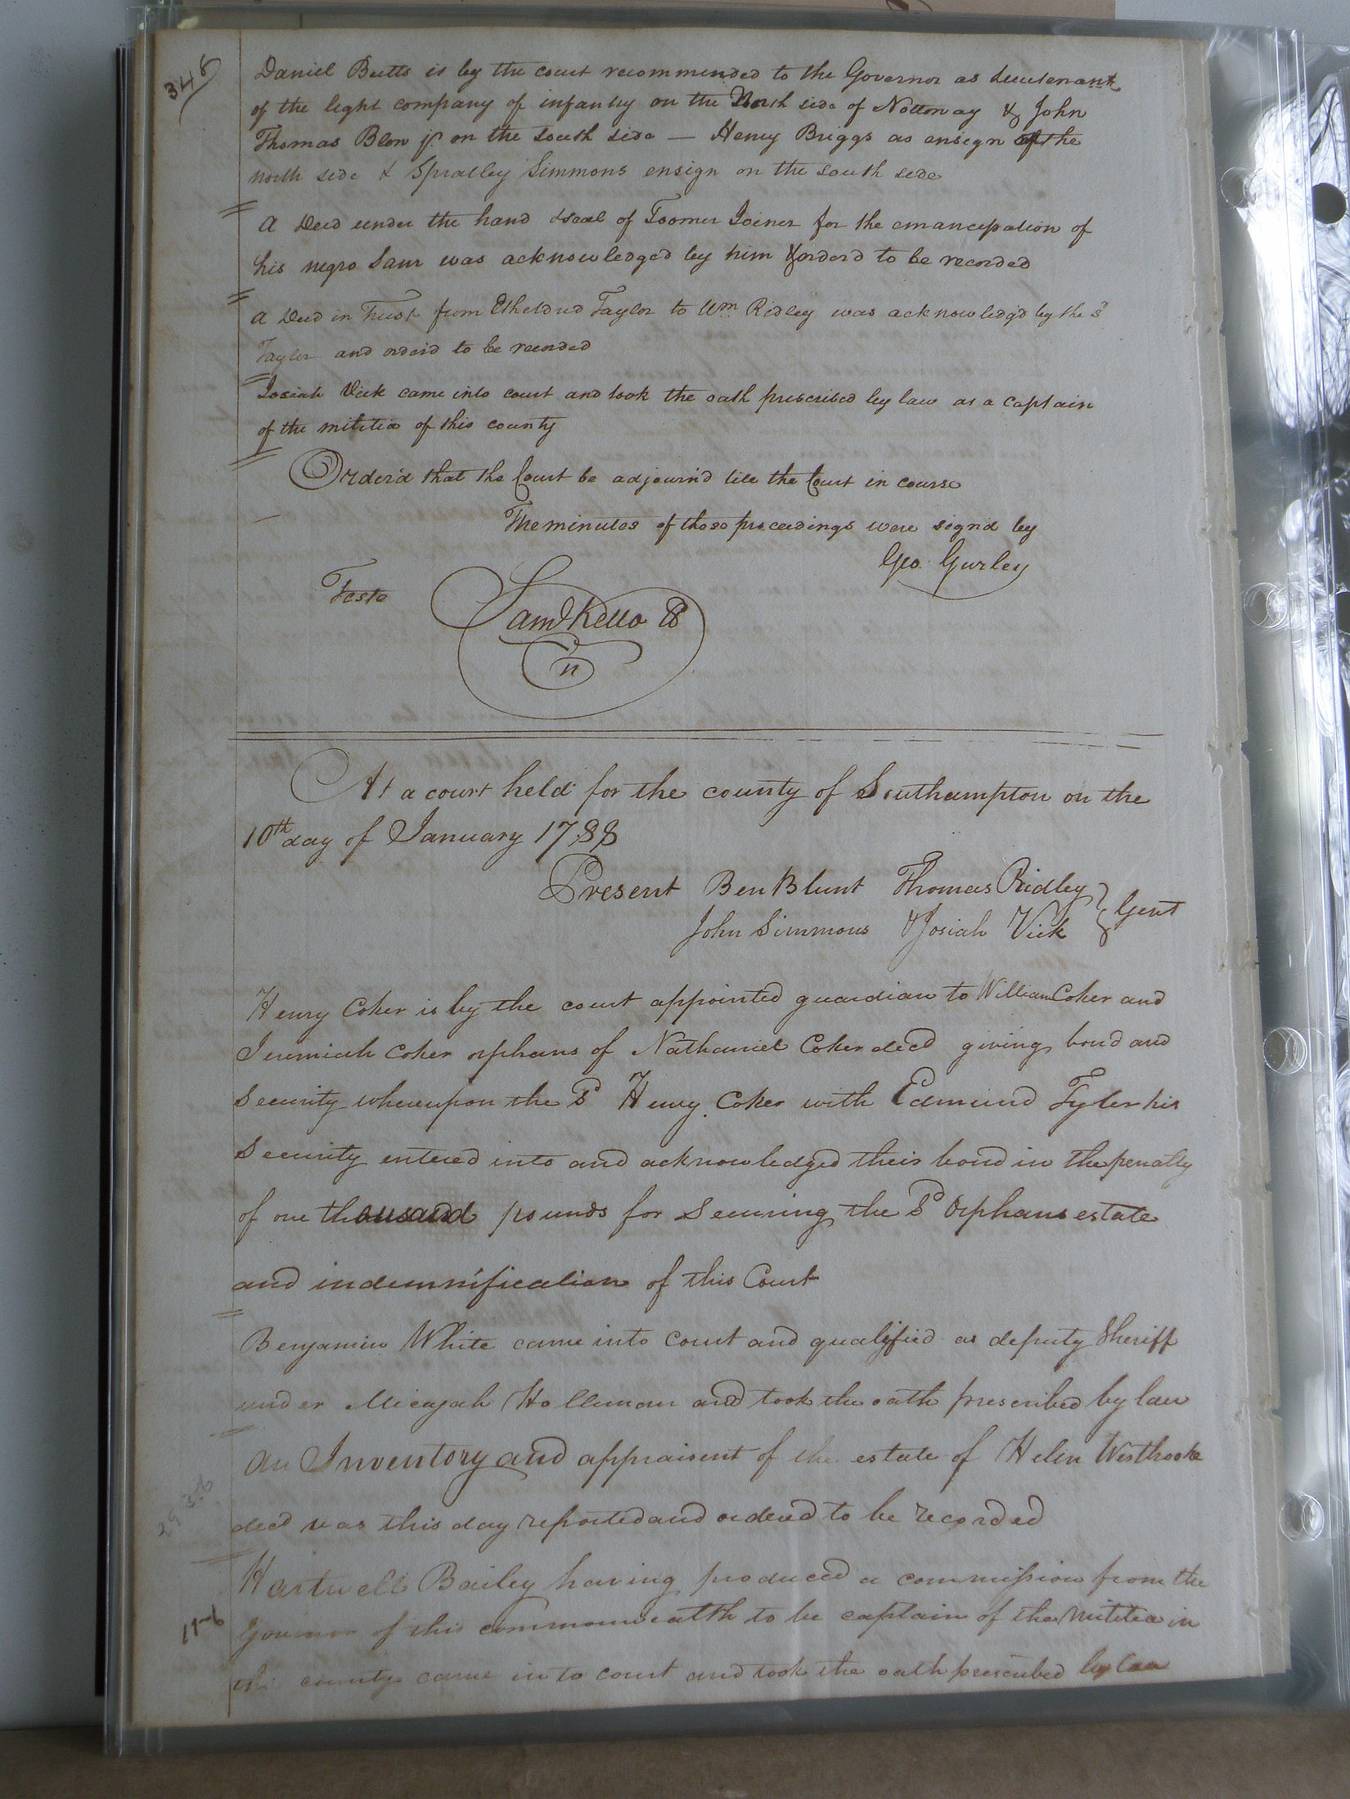 348
Daniel Butts is by the court recommended to the Governor as Lieutenant
of the light company of infantry on the North side of Nottoway & John
Thomas Blow jr on the south side — Henry Briggs as ensign of the
north side & Spratley Simmons ensign on the south side
A Deed under the hand & seal of Toomer Joiner for the emancipation of
his negro Sam was acknowledged by him & orderd to be recorded
A Deed in Trust from Etheldred Taylor to Wm Ridley was acknowledg'd by the sd
Taylor and orderd to be recorded
Josiah Vick came into court and took the oath prescribed by law as a captain
of the militia of this county
Order'd that the Court be adjourn'd till the Court in course
The minutes of those proceedings were sign'd by
Geo. Gurley
Teste
Saml Kello
At a court held for the county of Southampton on the
10th day of January 1788
Present Ben Blunt Thomas Ridley
John Simmons & Josiah Vick } Gent
Henry Coker is by the court appointed guardian to William Coker and
Jeremiah Coker orphans of Nathaniel Coker decd giving bond and
Security whereupon the Sd Henry Coker with Edmund Tyler his
Security entered into and acknowledged their bond in the penalty
of one thousand pounds for securing the Sd Orphans estate
and indemnification of this Court
Benjamin White came into Court and qualified as deputy Sheriff
under Micajah Holliman and took the oath prescribed by law
An Inventory and appraisent of the estate of Helen Westbrooke
decd was this day reported and ordered to be recorded
Hartwell Bailey having produced a commission from the
Governor of this commonwealth to be captain of the militia in
this county came into court and took the oath prescribed by law